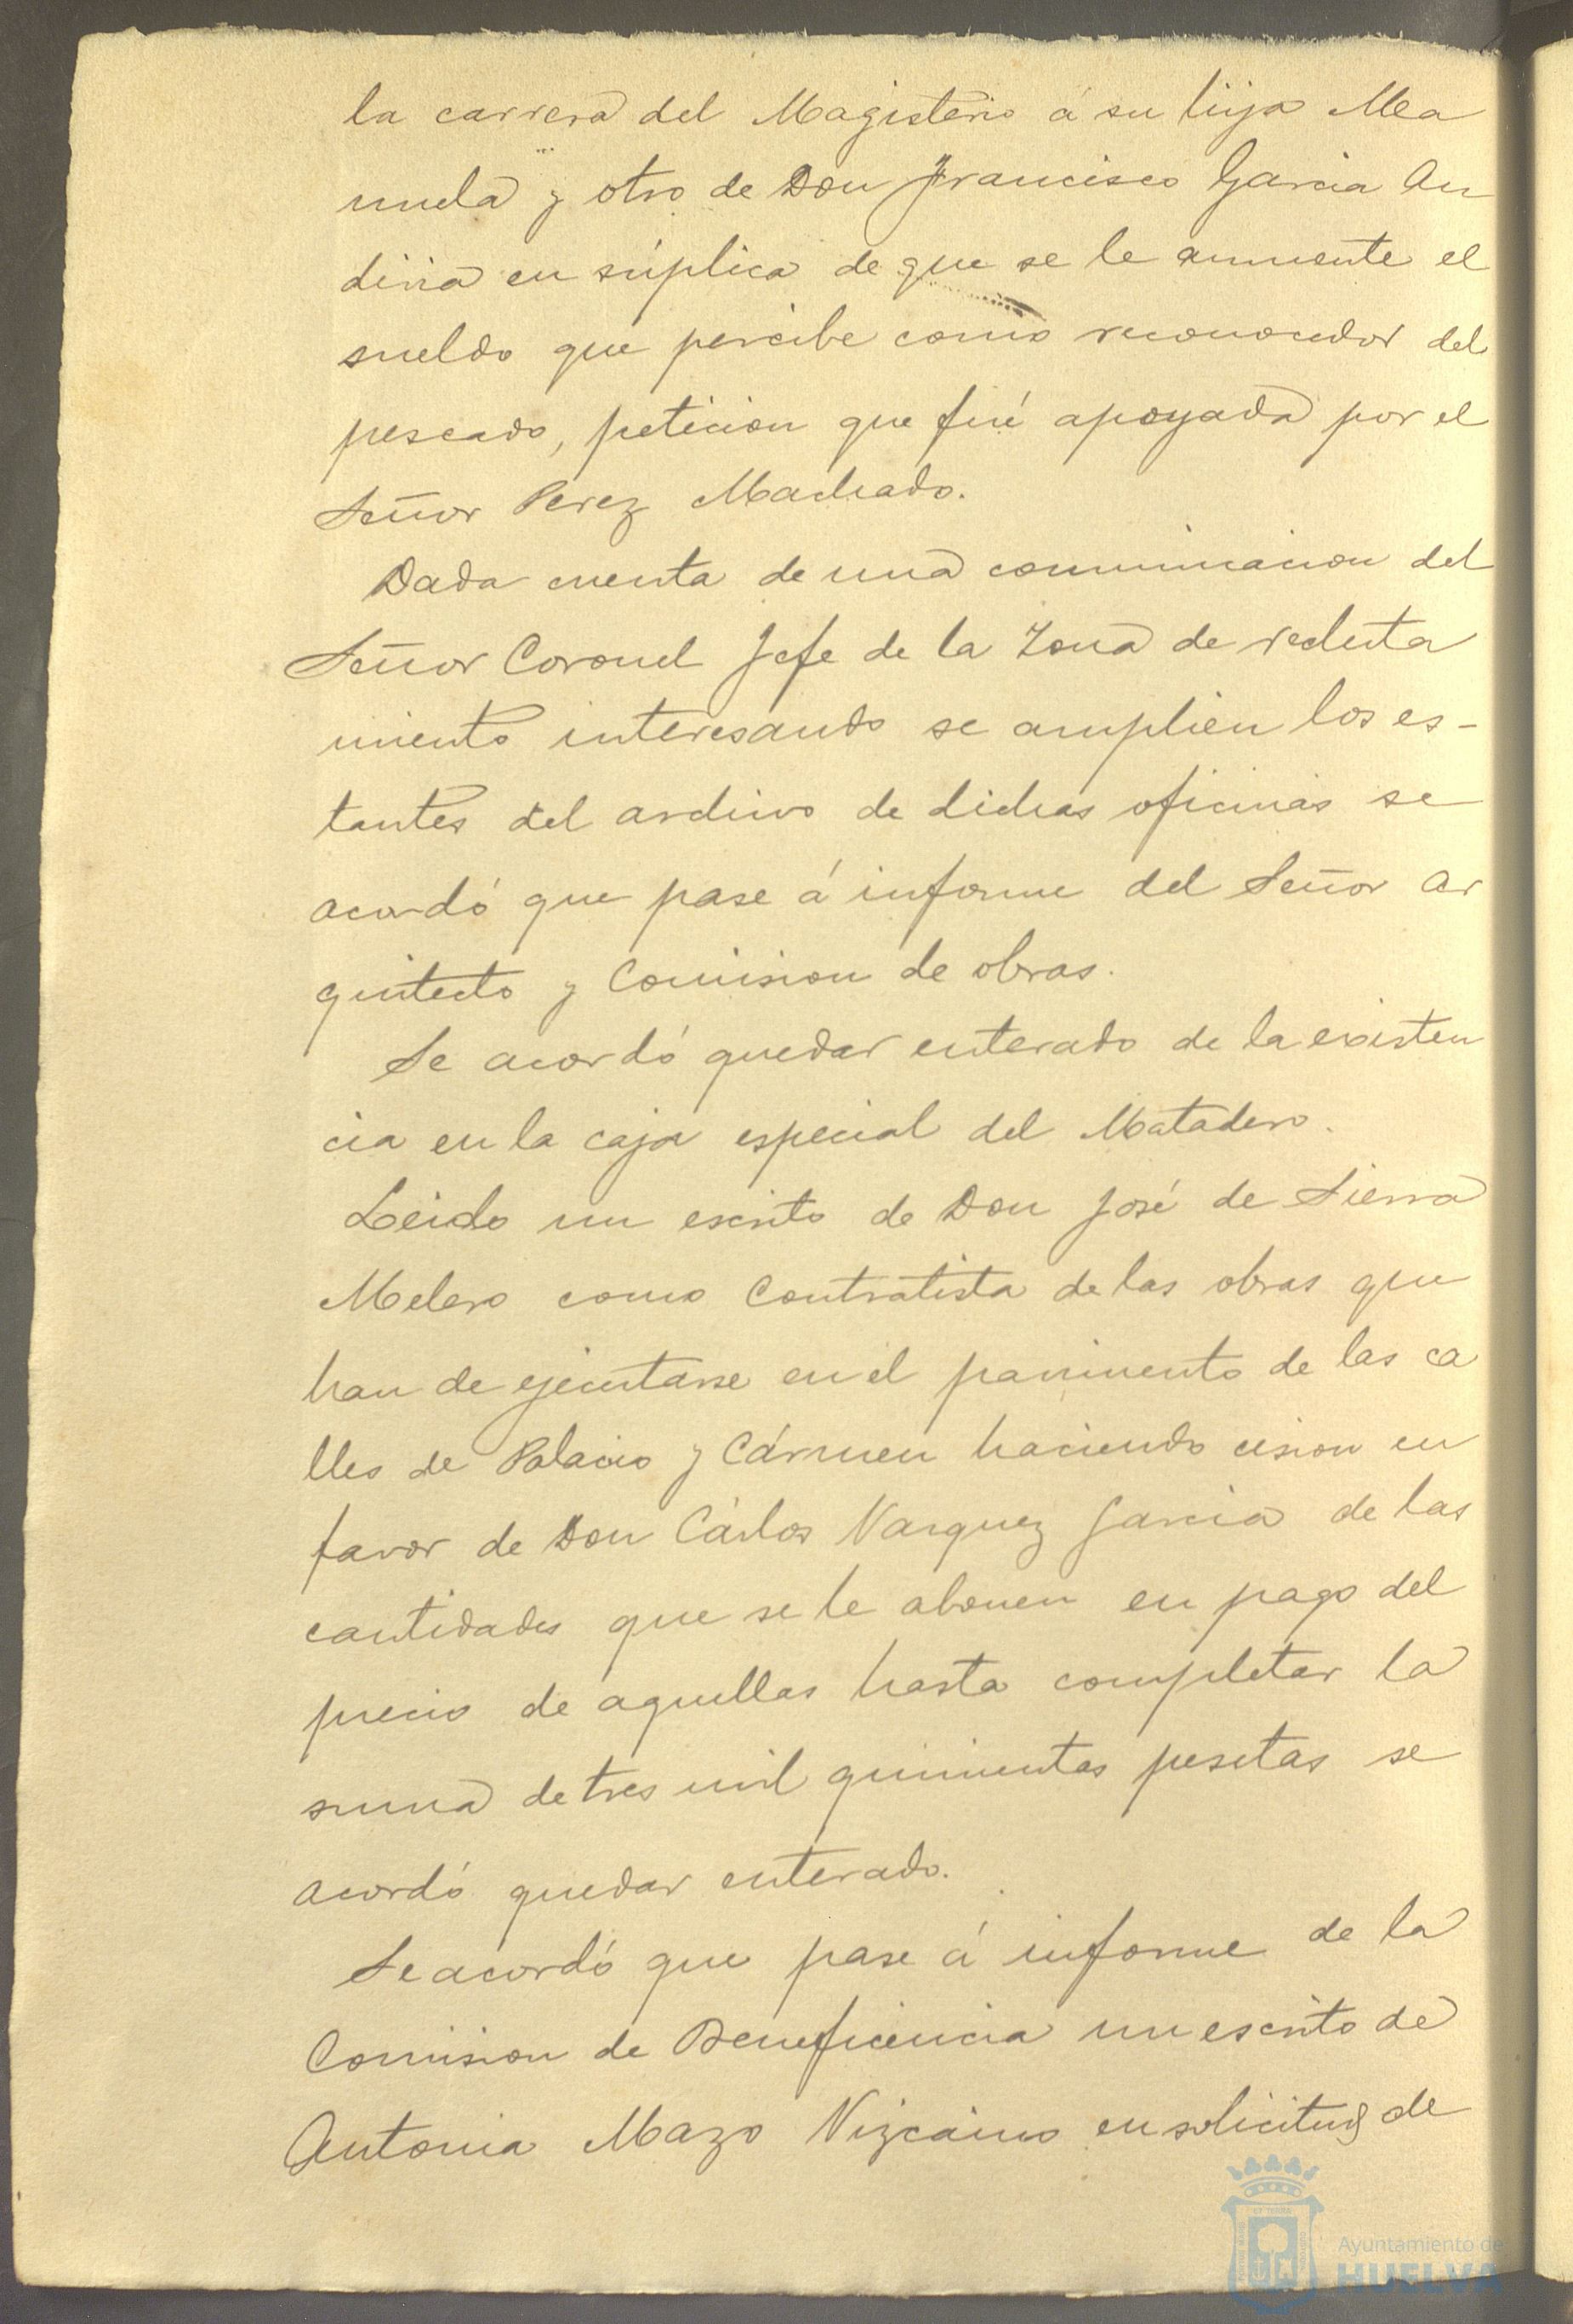 la carrera del Magisterio á su hija Ma
nuela y otro de Don Francisco Garcia An
diria en súplica de que se le aumente el
sueldo que percibe como reconocedor del
pescado, peticion que fué apoyada por el
Señor Perez Machado.
Dada cuenta de una comunicacion del
Señor Coronel Jefe de la Zona de recluta
miento interesando se amplien los es-
tantes del archivo de dichas oficinas se
acordó que pase á informe del Señor Ar
quitecto y Comision de obras.
Se acordó quedar enterado de la existen
cia en la caja especial del Matadero.
Leido un escrito de Don José de Sierra
Melero como Contratista de las obras que
han de ejecutarse en el pavimento de las ca
lles de Palacio y Cármen haciendo cesion en
favor de Don Cárlos Vazquez Garcia de las
cantidades que se le abonen en pago del
precio de aquellas hasta completar la
suma de tres mil quinientas pesetas se
acordó quedar enterado.
Se acordó que pase á informe de la
Comision de Beneficencia un escrito de
Antonia Mazo Vizcaino en solicitud de
Ayuntamiento de
HUELVA